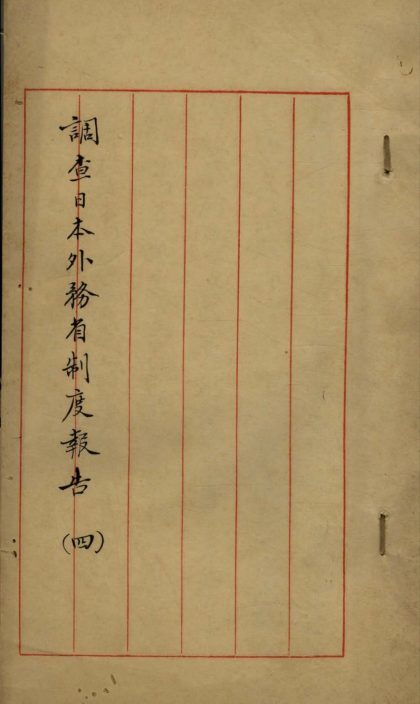 調查日本外務省制度報告(四)